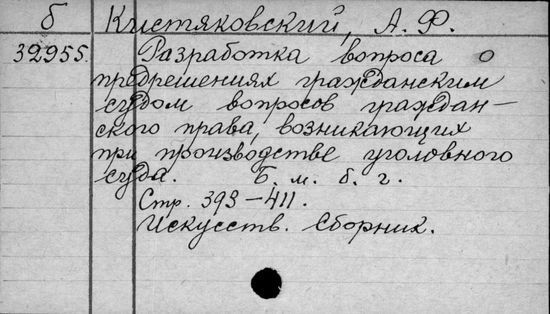 б Кистяковский, А. Ф.
32955. Разработка вопроса о
предрешениях гражданским
судом вопросов граждан-
ского права, возникающих
при производстве уголовного
суда. Б. м. б. г.
Стр. 393-411.
Искусств. сборник.